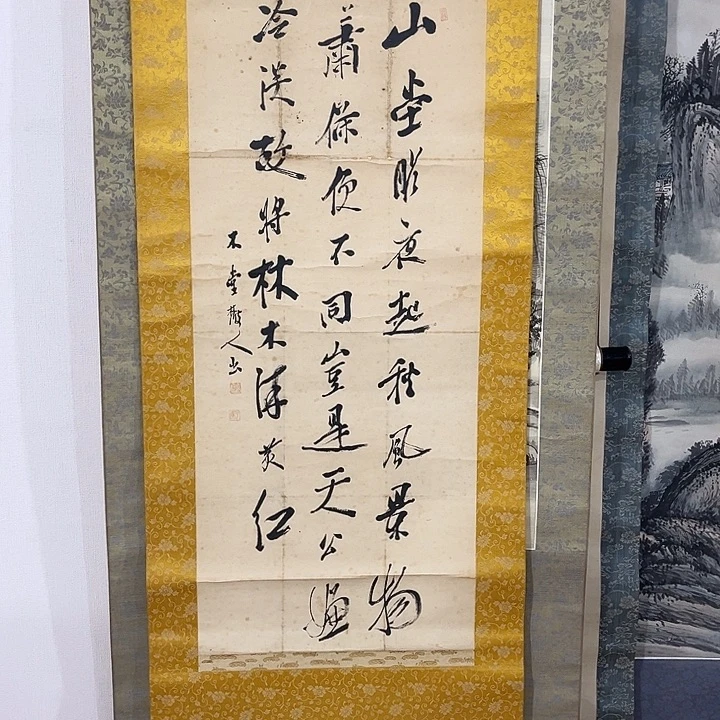 山堂昨夜起秋風景物
蕭條便不同豈是天公嫌
冷淡故將林木紅
木堂人書